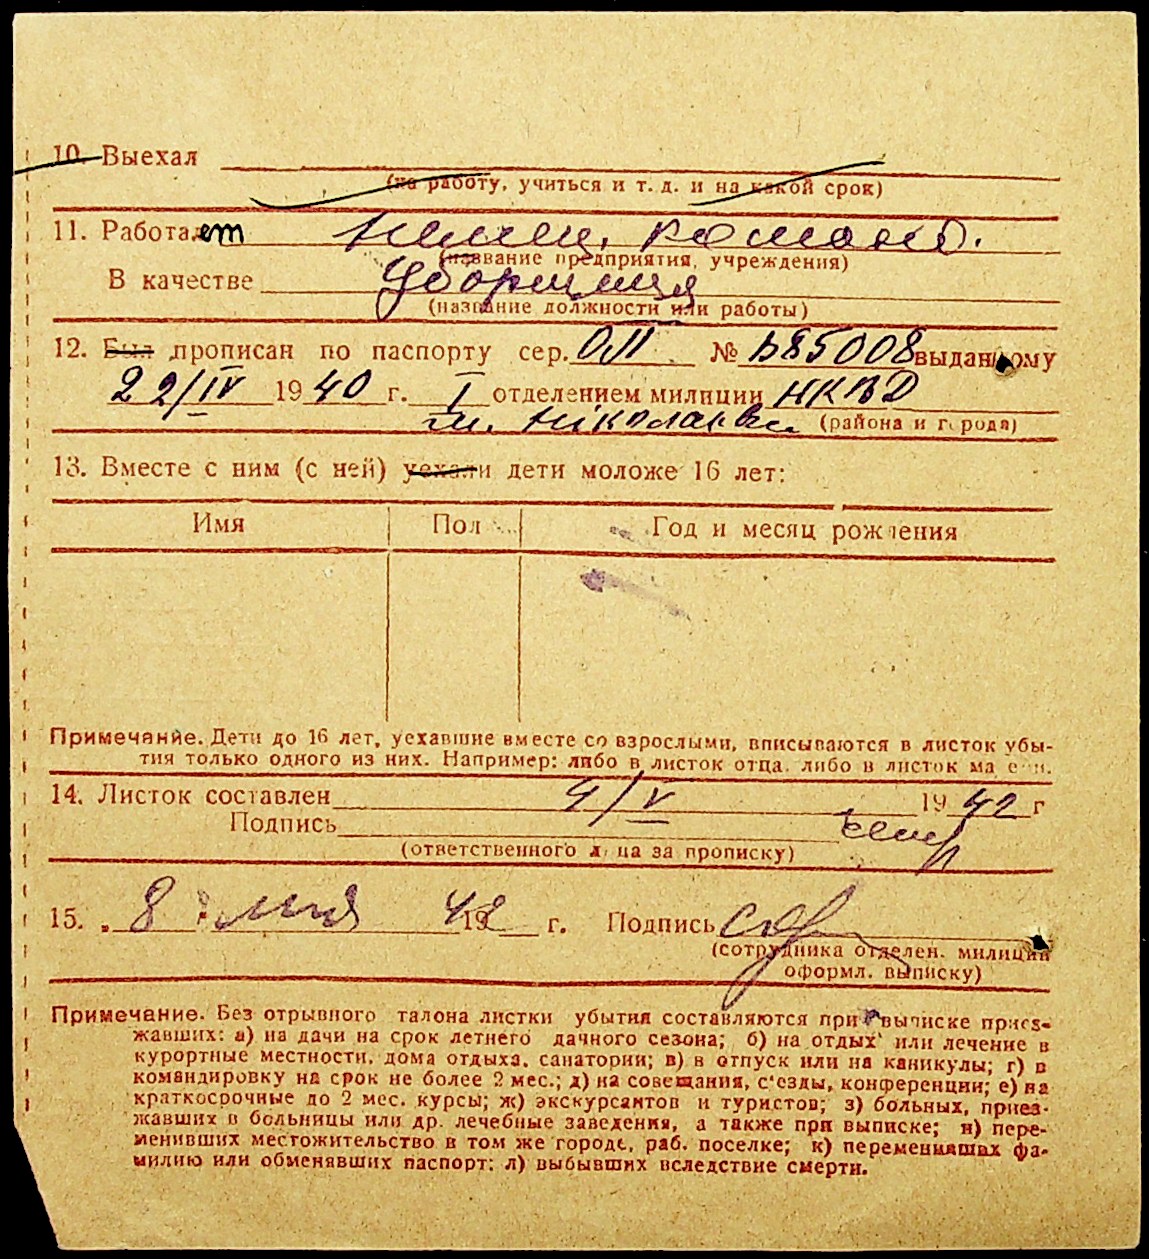 10. Выехал
(на работу, учиться и т. д. и на какой срок)
11. Работает Немец. команд.
(название предприятия, учреждения)
В качестве Уборщица
(название должности или работы)
12. Был прописан по паспорту сер. ОП № 585008 выданному
22/IV 1940 г. I отделением милиции НКВД
м. Ніколаєва (района и города)
13. Вместе с ним (с ней) уехали дети моложе 16 лет:
Имя Пол Год и месяц рождения
Примечание. Дети до 16 лет, уехавшие вместе со взрослыми, вписываются в листок убы-
тия только одного из них. Например: либо в листок отца, либо в листок матери.
14. Листок составлен 4/V 1942 г
Подпись
(ответственного лица за прописку)
15. „ 8 " мая 1942 г. Подпись
(сотрудника отделен. милиции
оформл. выписку)
Примечание. Без отрывного талона листки убытия составляются при выписке приез-
жавших: а) на дачи на срок летнего дачного сезона; б) на отдых или лечение в
курортные местности, дома отдыха, санатории; в) в отпуск или на каникулы; г) в
командировку на срок не более 2 мес.; д) на совещания, с'езды, конференции; е) на
краткосрочные до 2 мес. курсы; ж) экскурсантов и туристов; з) больных, приез-
жавших в больницы или др. лечебные заведения, а также при выписке; и) пере-
менивших местожительство в том же городе, раб. поселке; к) переменивших фа-
милию или обменявших паспорт; л) выбывших вследствие смерти.